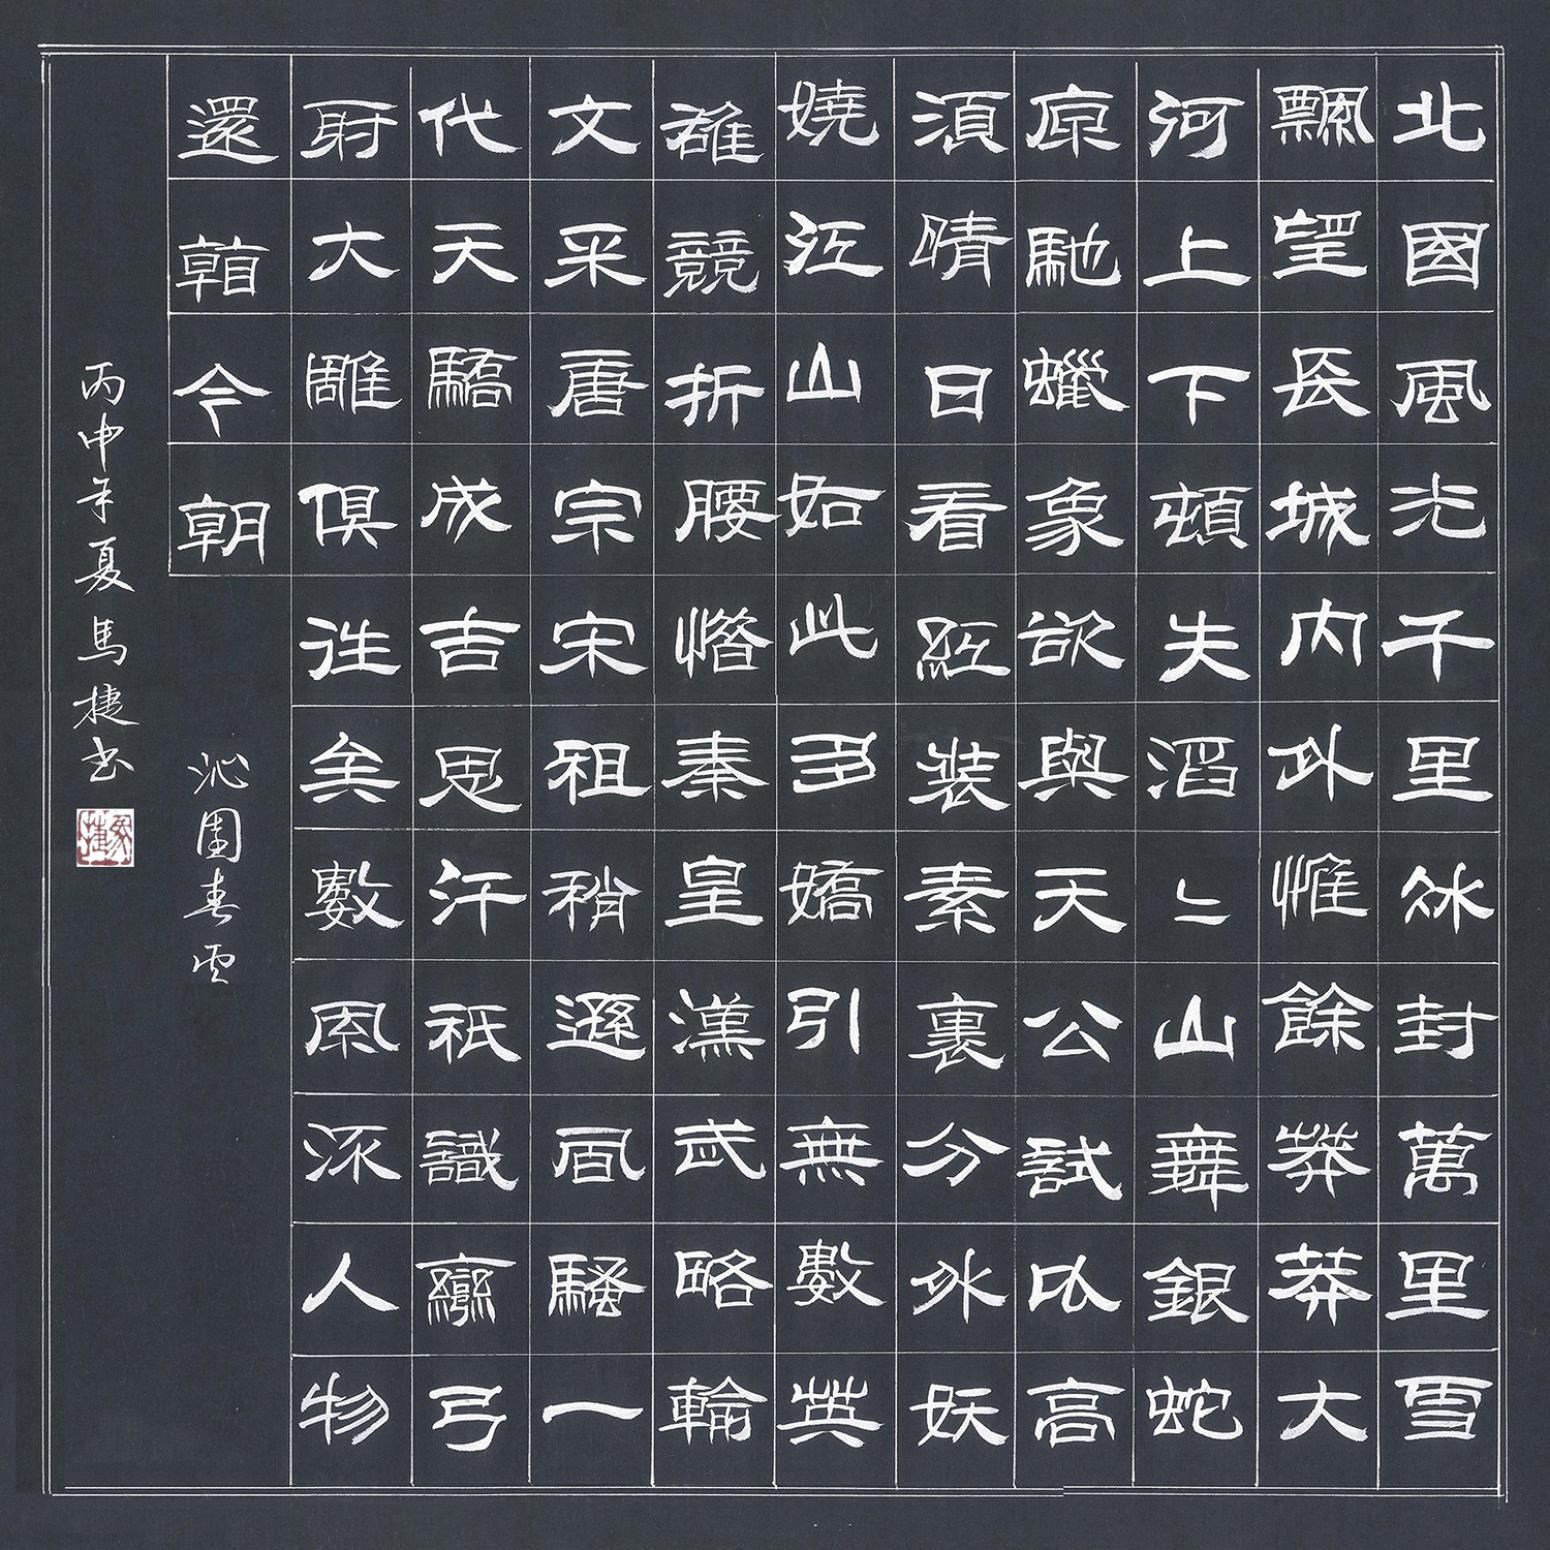 北國風光千里冰封萬里雪
飄望長城內外惟餘莽莽大
河上下頓失滔〻山舞銀蛇
原馳蠟象欲與天公試比高
須晴日看紅裝素裹分外妖
嬈江山如此多嬌引無數英
雄競折腰惜秦皇漢武略輸
文采唐宗宋祖稍遜風騷一
代天驕成吉思汗祇識彎弓
射大雕俱往矣數風流人物
還看今朝
沁園春雪
丙申年夏馬捷书
馬捷